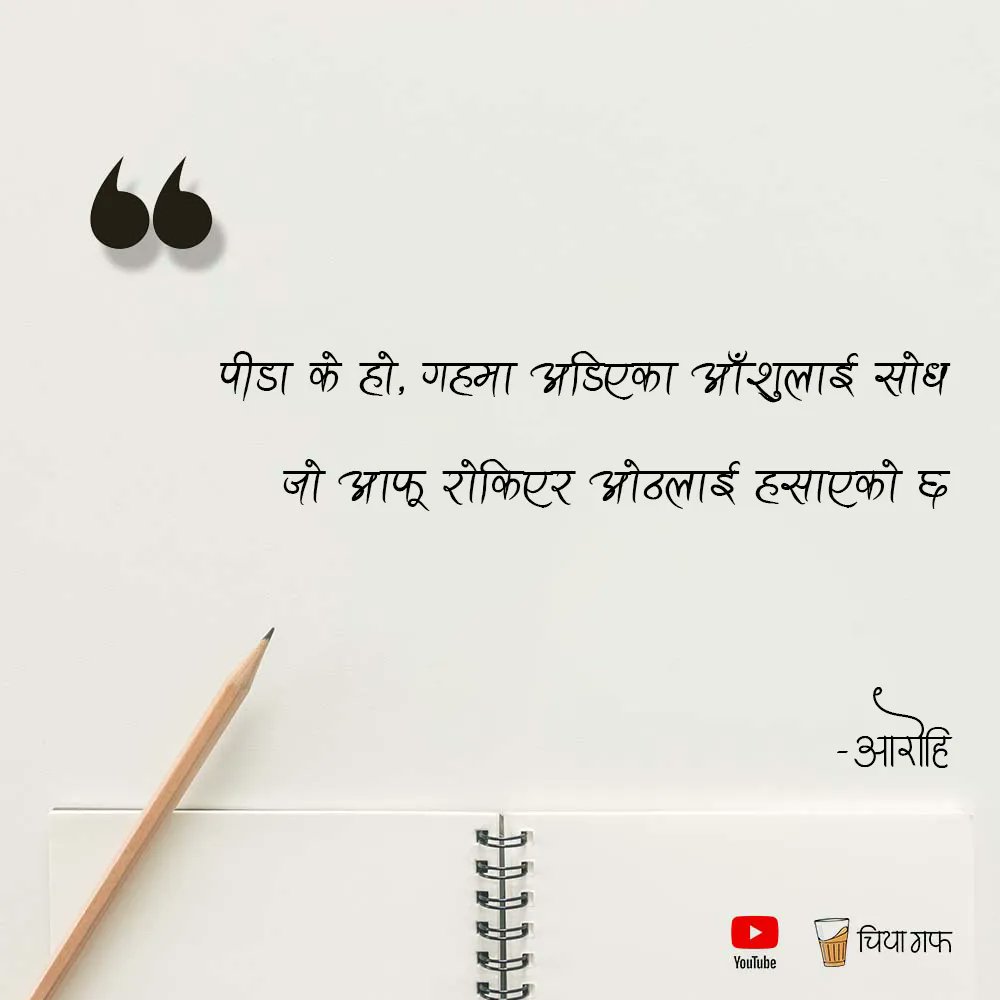 पीडा के हो, गहमा अडिएका आँशुलाई सोध
जो आफू रोकिएर ओठलाई हसाएको छ
-आरोहि
YouTube
चिया गफ